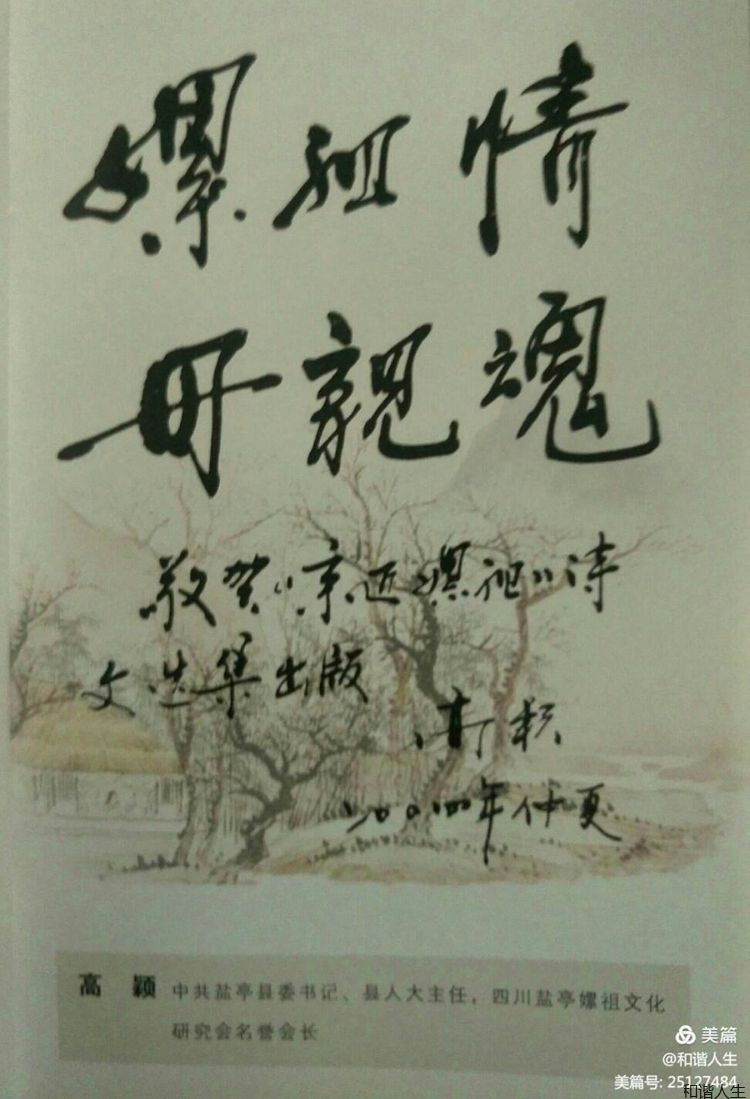 嫘祖情
母親魂
敬贺《亲近嫘祖》诗
文选集出版
高颖
二〇〇四年仲夏
高 颖 中共盐亭县委书记、县人大主任，四川盐亭嫘祖文化
研究会名誉会长
美篇
@和谐人生
美篇号: 25127484
和谐人生